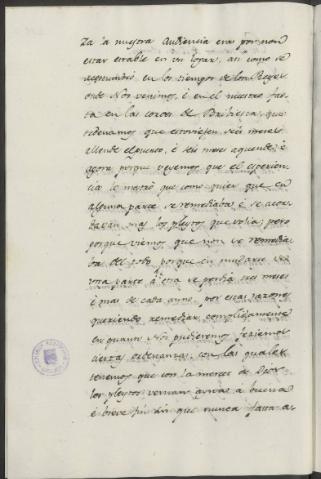 Za la nuestra Audiencia era por non
estar estable en un logar, asi como se
acostumbró en los tiempos de los Reyes
onde Nós venimos, é en el nuestro fas-
ta en las cortes de Bribiesca, que
ordenamos que estoviesen seis meses
allende el puerto, é seis meses aquende: é
agora porque veyemos que el esperien-
cia lo mostró que como quier que en
alguna parte se remediaba é se acor-
taban mas los pleytos que solia; pero
porque viemos que non se remedia-
ba del todo, porque en mudarse de
una parte á otra se perdia seis meses
é mas de cada anno por estas razones
queriendo remediar complidamente
en quanto Nós pudieremos feciemos
ciertas ordenanzas, con las quales
tenemos que con la merced de Dios
los pleytos vernan ayna á buena
é breve fin sin que nunca fasta a-